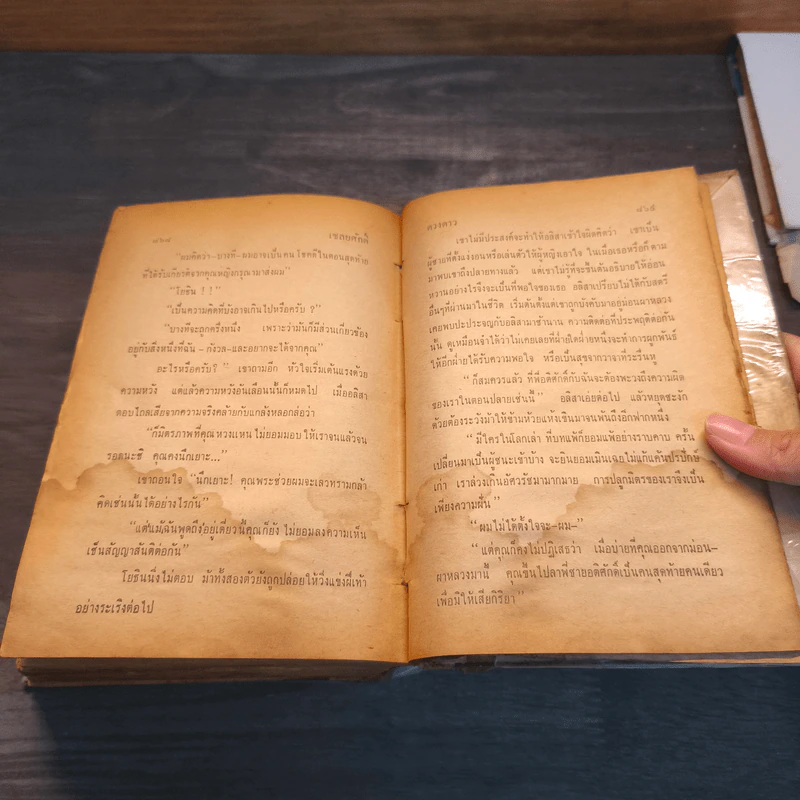 เชลยศักดิ์
"ผมคิดว่า-บางที-ผมอาจเป็นคนโชคดีในตอนสุดท้าย
ที่ได้รับเกียรติจากคุณหญิงกรุณามาส่งผม"
"โยธิน ! !"
"เป็นความคิดที่บังอาจเกินไปหรือครับ ?"
"บางทีจะถูกครึ่งหนึ่ง เพราะว่ามันก็มีส่วนเกี่ยวข้อง
อยู่กับสิ่งหนึ่งที่ฉัน - กังวล-และอยากจะได้จากคุณ"
อะไรหรือครับ ?" เขาถามอีก หัวใจเริ่มเต้นแรงด้วย
ความหวัง แต่แล้วความหวังอันเลือนนั้นก็หมดไป เมื่ออลิสา
ตอบไถลเสียจากความจริงคล้ายกับแกล้งหลอกล่อว่า
"ก็มิตรภาพที่คุณหวงแหน ไม่ยอมมอบให้เราจนแล้วจน
รอดนะซี คุณคงนึกเยาะ..."
เขาถอนใจ "นึกเยาะ! คุณพระช่วยผมจะเลวทรามกล้า
คิดเช่นนั้นได้อย่างไรกัน"
"แต่แม้ฉันพูดถึงอยู่เดี๋ยวนี้คุณก็ยัง ไม่ยอมลงความเห็น
เซ็นสัญญาสันติต่อกัน"
โยธินนิ่งไม่ตอบ ม้าทั้งสองตัวยังถูกปล่อยให้วิ่งแข่งฝีเท้า
อย่างระเริงต่อไป
ดวงดาว
๘๖๕
เขาไม่มีประสงค์จะทำให้อลิสาเข้าใจผิดคิดว่า เขาเป็น
ผู้ชายที่ดึงแง่งอนหรือเล่นตัวให้ผู้หญิงเอาใจ ในเมื่อเธอหรือก็ตาม
มาพบเขาถึงปลายทางแล้ว แต่เขาไม่รู้ที่จะชั้นด้นอธิบายให้อ่อน
หวานอย่างไรจึงจะเป็นที่พอใจของเธอ อลิสาเปรียบไม่ได้กับสตรี
อื่นๆที่ผ่านมาในชีวิต เริ่มต้นตั้งแต่เขาถูกบังคับมาอยู่ม่อนผาหลวง
เคยพบปะประจญกับอลิสามาช้านาน ความติดต่อที่ประพฤติต่อกัน
นั้น ดูเหมือนจำได้ว่าไม่เคยเลยที่ฝ่ายใดฝ่ายหนึ่งจะทำการผูกพันธ์
ให้อีกฝ่ายได้รับความพอใจ หรือเป็นสุขจากวาจาที่ระรื่นหู
"ก็สมควรแล้ว ที่พี่อดิศักดิ์กับฉันจะต้องพะวงถึงความผิด
ของเราในตอนปลายเช่นนี้" อลิสาเอ่ยต่อไป แล้วหยุดชะงัก
ด้วยต้องระวังม้าให้ข้ามห้วยแห้งเขินมาจนพ้นถึงอีกฟากหนึ่ง
"มีใครในโลกเล่า ที่บทแพ้ก็ยอมแพ้อย่างราบคาบ ครั้น
เปลี่ยนมาเป็นผู้ชนะเข้าบ้าง จะยินยอมเมินเฉยไม่แก้แค้นปรปักษ์
เก่า เราล่วงเกินอัศวรัชมามากมาย การปลูกมิตรของเราจึงเป็น
เพียงความฝัน"
"ผมไม่ได้ตั้งใจจะ-ผม-"
"แต่คุณก็คงไม่ปฏิเสธว่า เมื่อบ่ายที่คุณออกจากม่อน-
ผาหลวงมานี้ คุณขึ้นไปลาพี่ชายอดิศักดิ์เป็นคนสุดท้ายคนเดียว
เพื่อมิให้เสียกิริยา"